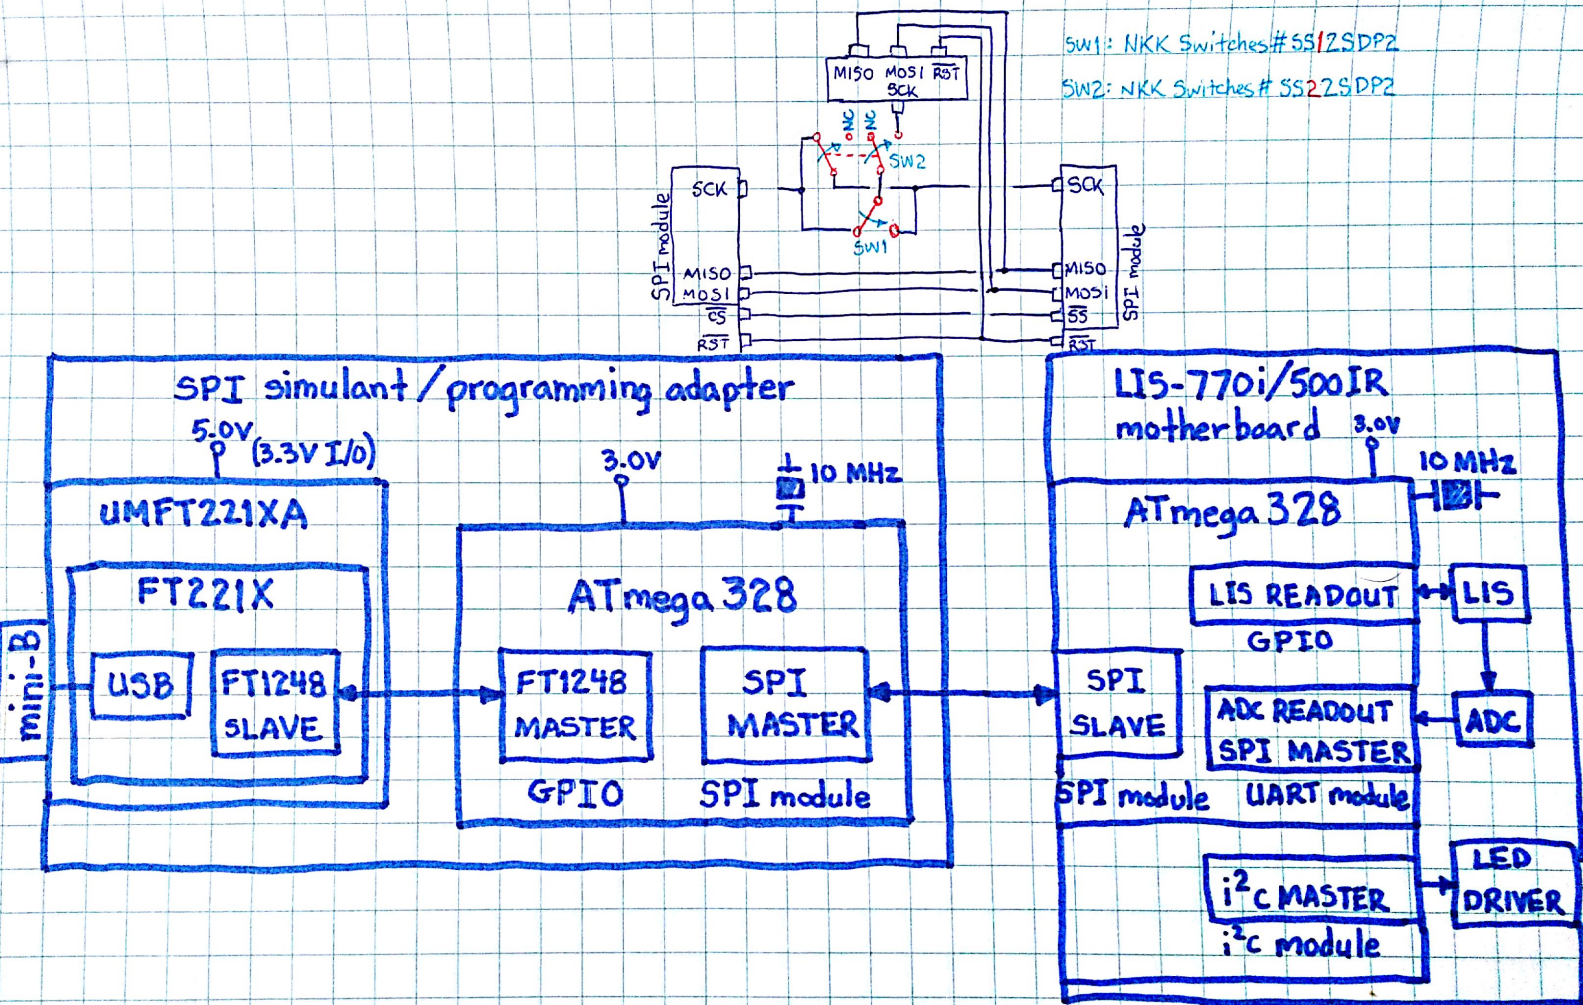 SW1: NKK Switches#SS12SDP2
SW2: NKK Switches# SS22SDP2
MISO MOSI RST
SCK
NC NC
SW2
SW1
SPI module
SCK
MISO
MOSI
CS
RST
SPI module
SCK
MISO
MOSi
SS
RST
SPI simulant/programming adapter
5.0V (3.3V I/O)
UMFT221XA
FT221X
mini-B
USB
FT1248
SLAVE
3.0V
10 MHz
ATmega 328
FT1248
MASTER
GPIO
SPI
MASTER
SPI module
LIS-770i/500IR
motherboard
3.0V
10 MHz
ATmega 328
LIS READOUT
GPIO
LIS
SPI
SLAVE
SPI module
ADC READOUT
SPI MASTER
UART module
ADC
i²C MASTER
i²C module
LED
DRIVER